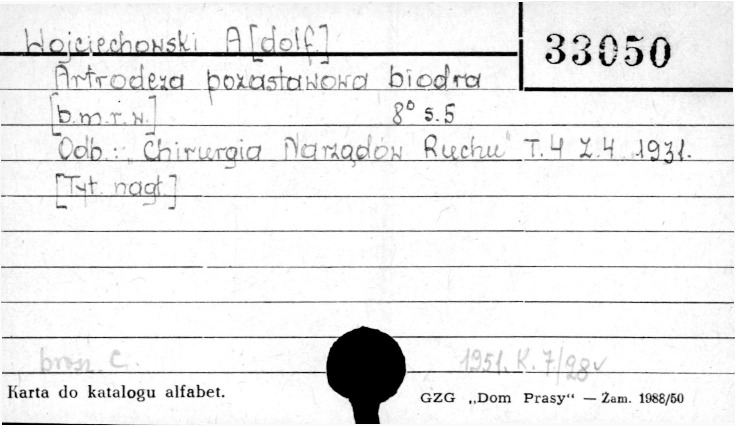 Wojciechowski A[dolf]
33050
Artrodeza pozastawowa biodra
[b.m.r.w.] 8° s.5
Odb.: „Chirurgia Narządów Ruchu" T.4 Z.4 1931.
[Tyt. nagł.]
brosz. C. 1951. K. 7/28
Karta do katalogu alfabet.
GZG „Dom Prasy“ — Zam. 1988/50